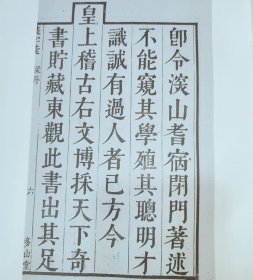 卽令淡山耆宿閉門著述
不能窺其學殖其聰明才
識誠有過人者已方今
皇上稽古右文博採天下奇
書貯藏東觀此書出其足
六